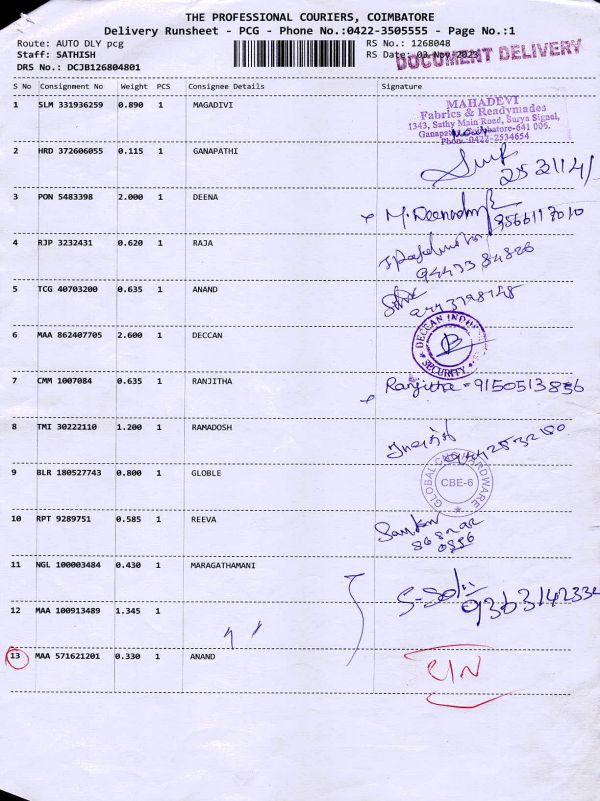 THE PROFESSIONAL COURIERS, COIMBATORE
Delivery Runsheet - PCG - Phone No.:0422-3505555 - Page No.:1
Route: AUTO DLY pcg RS No.: 1268048
Staff: SATHISH RS Date: 03 Nov 2023
DRS No.: DCJB126804801
DOCUMENT DELIVERY
S No Consignment No Weight PCS Consignee Details Signature
1 SLM 331936259 0.890 1 MAGADIVI
MAHADEVI
Fabrics & Readymades
1343, Sathy Main Road, Surya Signal,
Ganapathy, Coimbatore-641 006.
Phone:0422-2534654
2 HRD 372606055 0.115 1 GANAPATHI
3 PON 5483398 2.000 1 DEENA
9566117010
4 RJP 3232431 0.620 1 RAJA
5 TCG 40703200 0.635 1 ANAND
6 MAA 862407705 2.600 1 DECCAN
DECCAN
SECURITY
7 CMM 1007084 0.635 1 RANJITHA Ranjitha - 9150513856
8 TMI 30222110 1.200 1 RAMADOSH
9 BLR 180527743 0.800 1 GLOBLE
GLOBAL HARDWARE
CBE-6
10 RPT 9289751 0.585 1 REEVA
11 NGL 100003484 0.430 1 MARAGATHAMANI
12 MAA 100913489 1.345 1 〃
13 MAA 571621201 0.330 1 ANAND